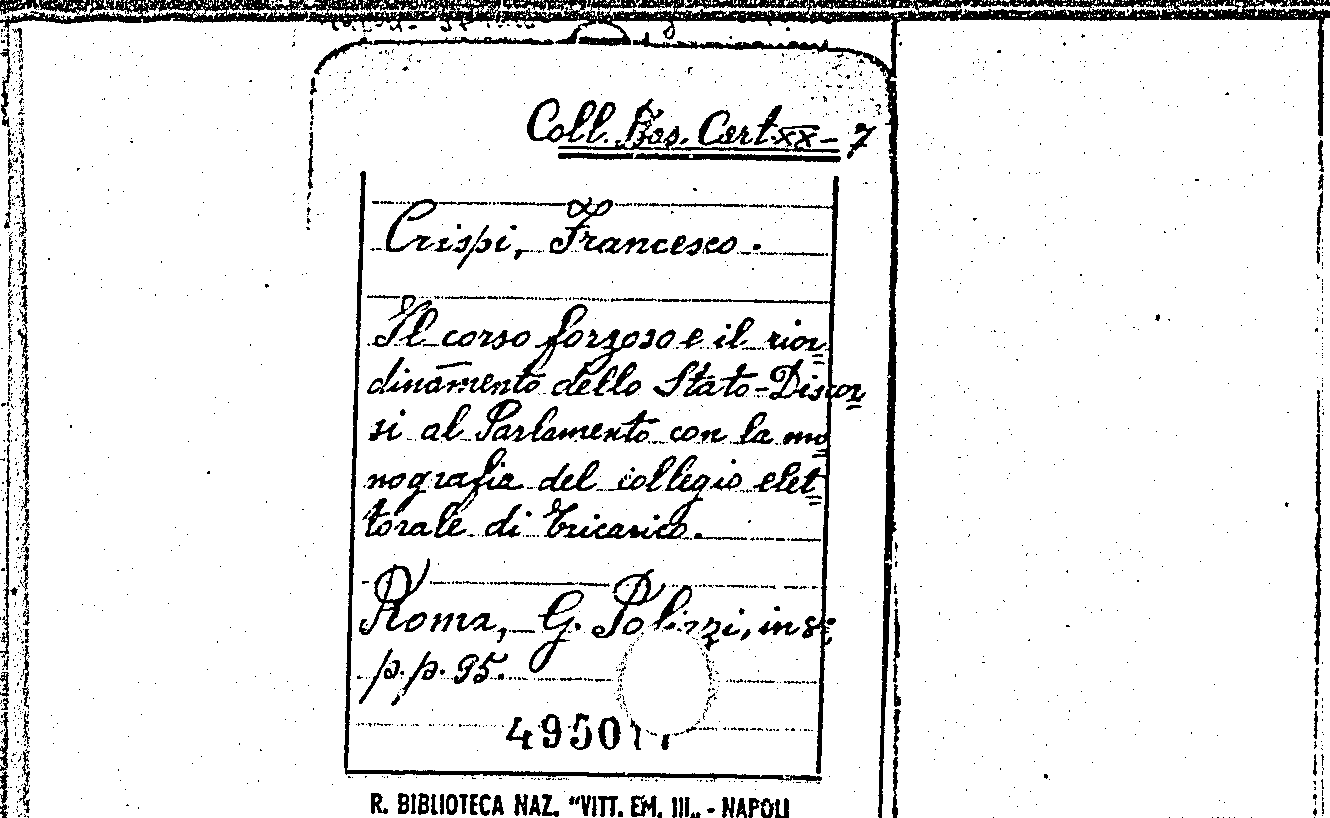 Coll. Bas. Cart. XX - 7
Crispi, Francesco.
Il corso forzoso e il rior
dinamento dello Stato - Discor
si al Parlamento con la mo
nografia del collegio elet
torale di Tricarico.
Roma, G. Polizzi, in 8º,
p.p. 95.
4950
R. BIBLIOTECA NAZ. "VITT. EM. III„ - NAPOLI